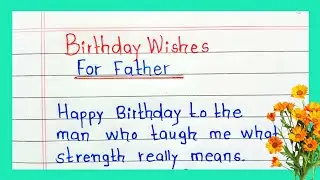 Birthday Wishes
For Father
Happy Birthday to the
man who taugh me what
strength really means.